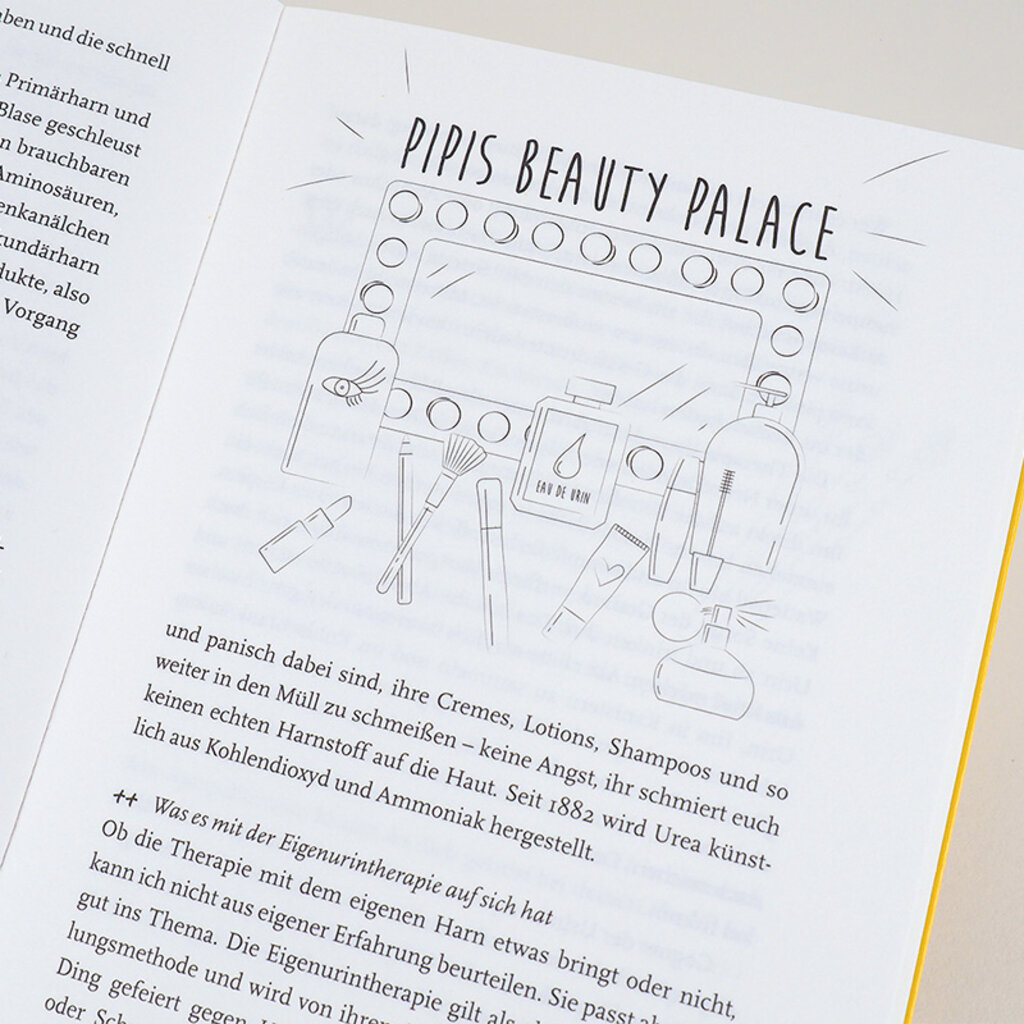 ben und die schnell
Primärharn und
Blase geschleust
n brauchbaren
Aminosäuren,
enkanälchen
kundärharn
dukte, also
Vorgang
PIPIS BEAUTY PALACE
EAU DE URIN
und panisch dabei sind, ihre Cremes, Lotions, Shampoos und so
weiter in den Müll zu schmeißen – keine Angst, ihr schmiert euch
keinen echten Harnstoff auf die Haut. Seit 1882 wird Urea künst-
lich aus Kohlendioxyd und Ammoniak hergestellt.
++ Was es mit der Eigenurintherapie auf sich hat
Ob die Therapie mit dem eigenen Harn etwas bringt oder nicht,
kann ich nicht aus eigener Erfahrung beurteilen. Sie passt ab
gut ins Thema. Die Eigenurintherapie gilt als
lungsmethode und wird von ihren
Ding gefeiert gegen
oder Sch